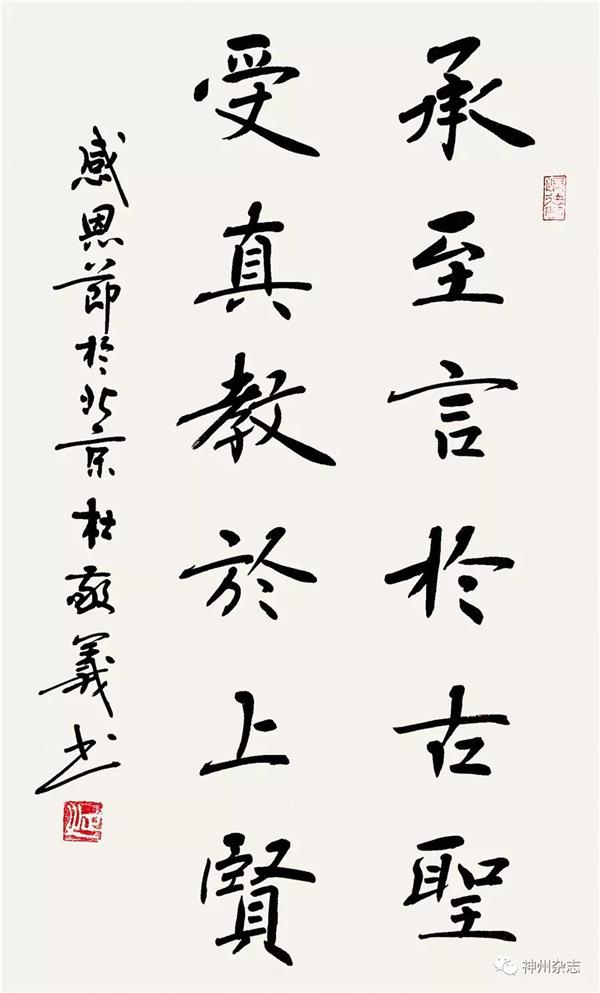 承至言於古聖
受真教於上賢
感恩節於北京杜敬義书
神州杂志